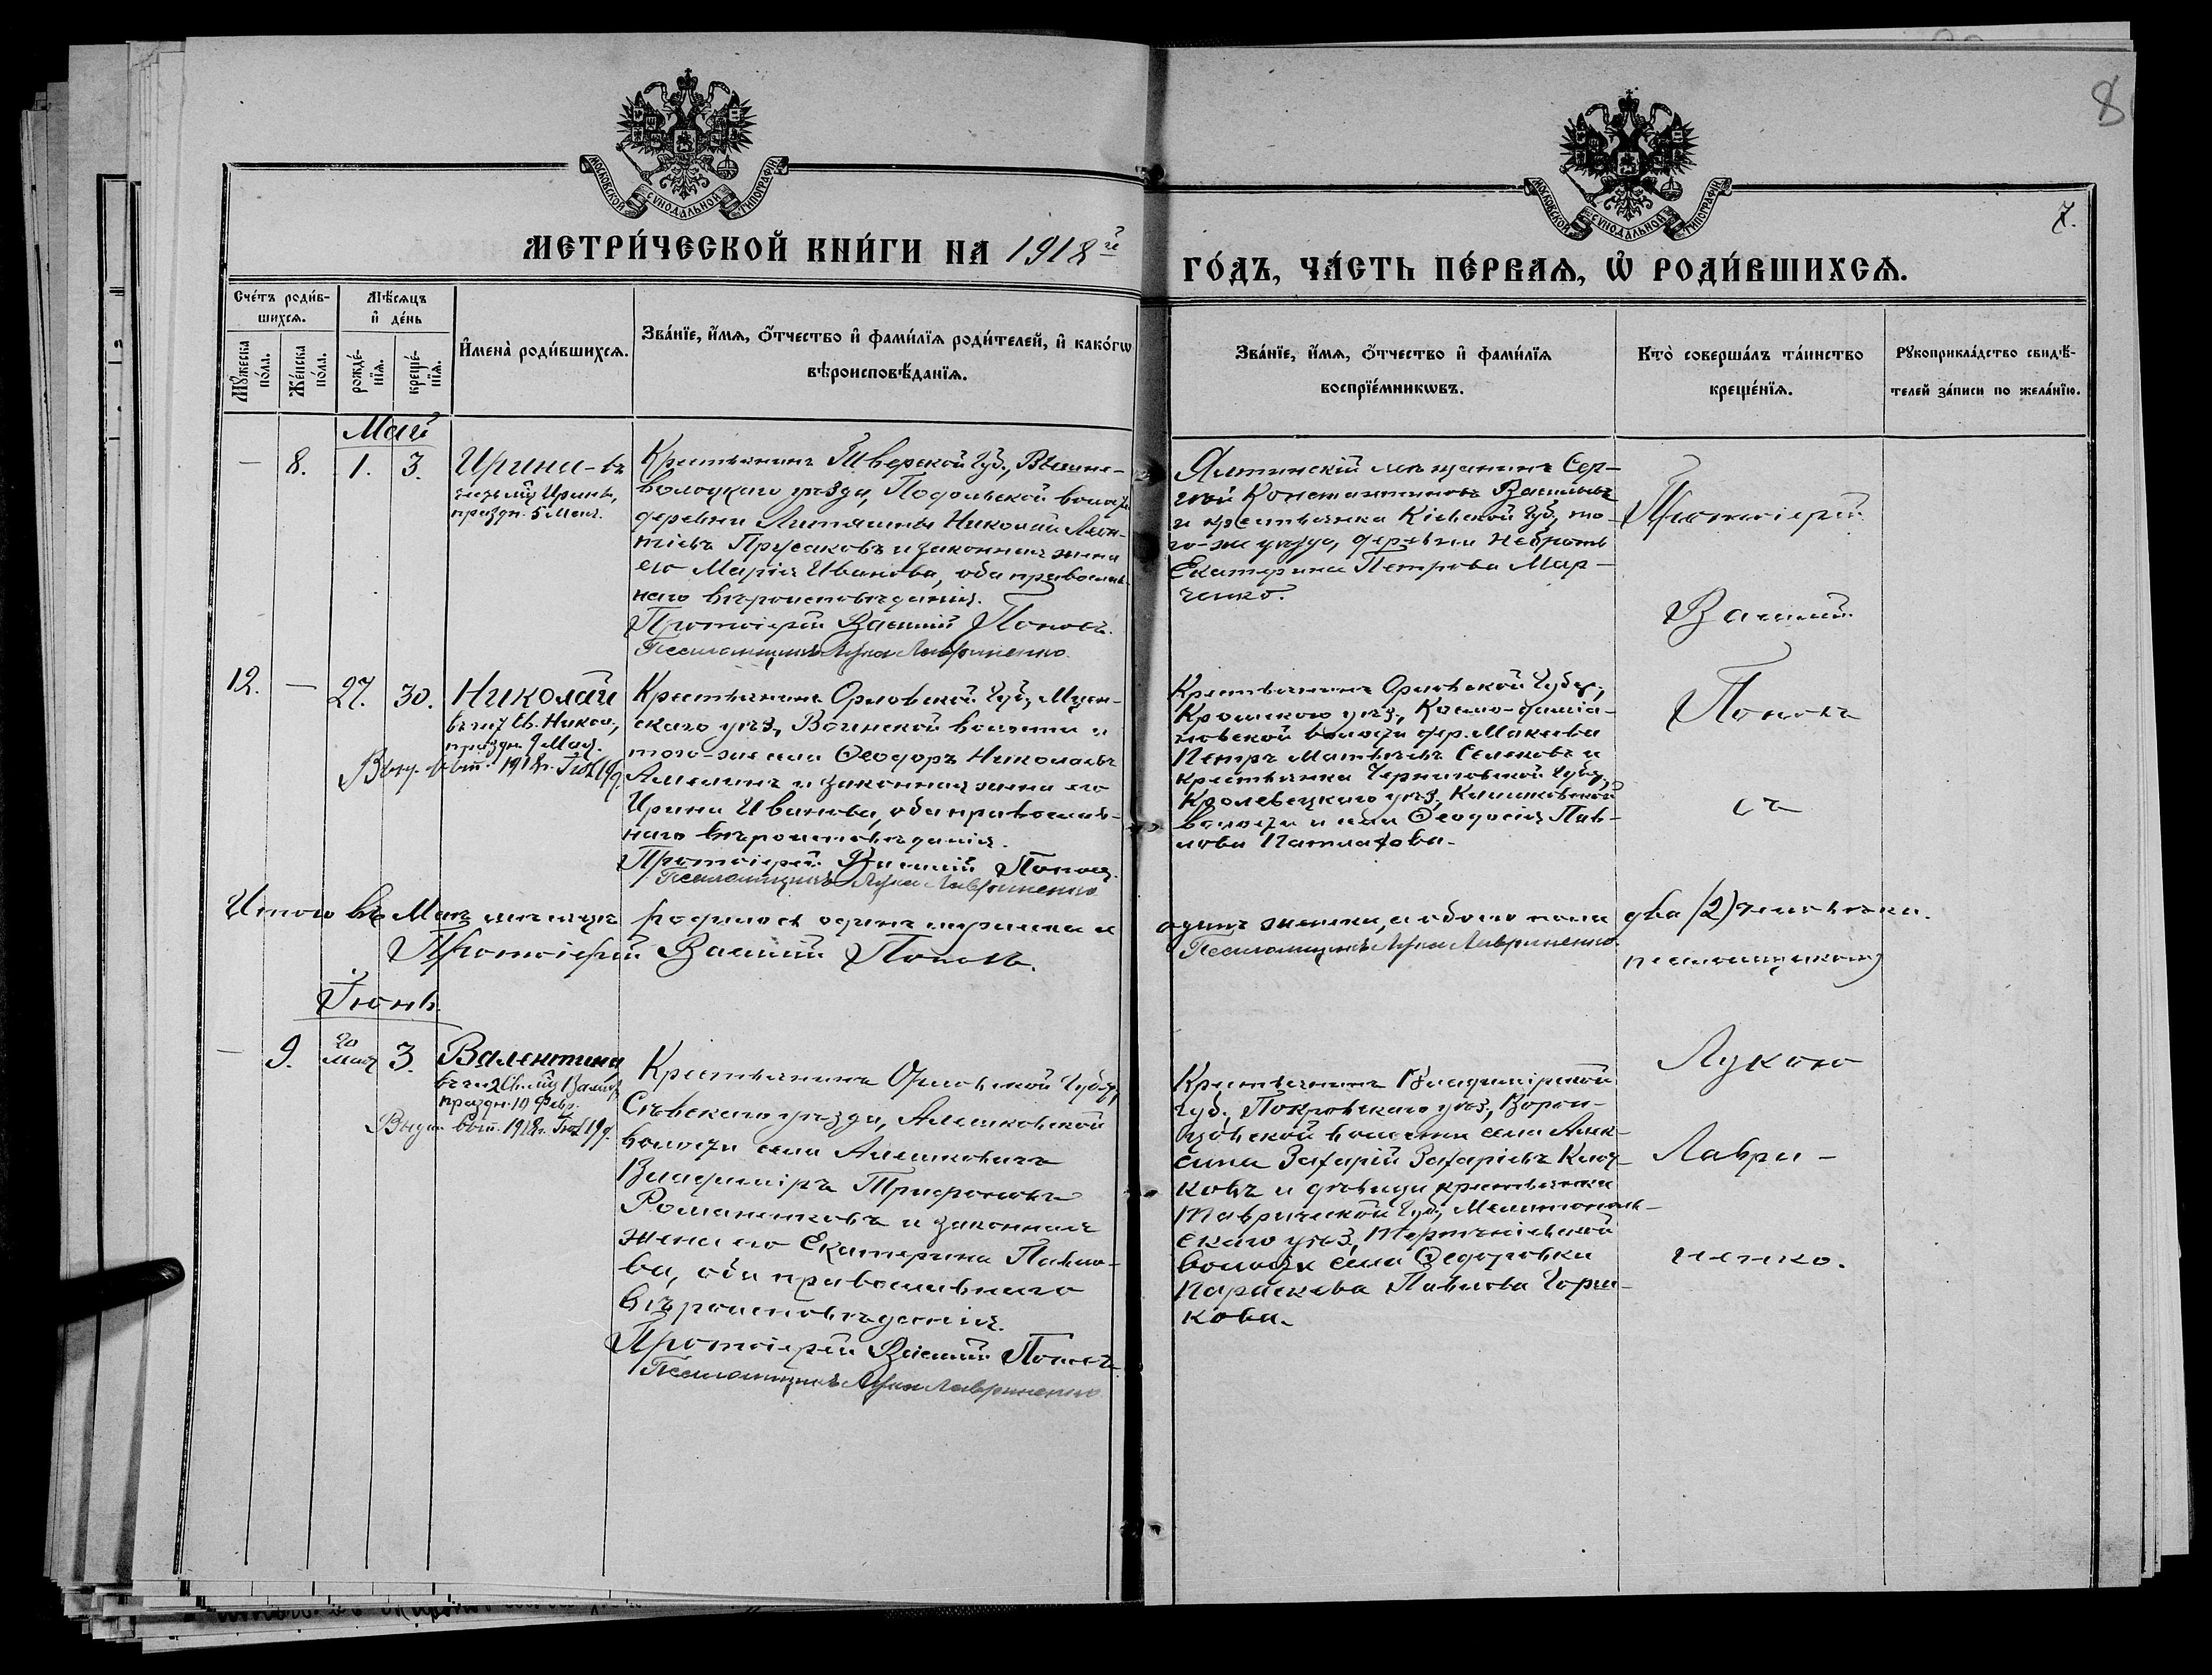 8
МОСКОВСКОЙ СѴНОДАЛЬНОЙ ТИПОГРАФІИ
МОСКОВСКОЙ СѴНОДАЛЬНОЙ ТИПОГРАФІИ
7.
МЕТРИ́ЧЕСКОЙ КНИ́ГИ НА 1918й
ГО́ДЪ, ЧА́СТЬ ПЕ́РВАѦ, Ѡ РОДИ́ВШИХСѦ.
Сче́тъ роди́в-
шихсѧ.
Мꙋжеска по́ла.
Же́нска по́ла.
Мѣ́сѧцъ
и҆ де́нь
рожде́-
нїѧ.
креще́-
нїѧ.
И҆мена̀ роди́вшихсѧ.
Зва́нїе, и҆́мѧ, ѻ҆́тчество и҆ фами́лїѧ роди́телей, и҆ како́гѡ
вѣроисповѣ́данїѧ.
Зва́нїе, и҆́мѧ, ѻ҆́тчество и҆ фами́лїѧ
воспрїе́мникѡвъ.
Кто̀ соверша́лъ та́инство
креще́нїѧ.
Рꙋкоприкла́дство свидѣ́-
телей за́писи по жела́нїю.
Май
— 8. 1. 3. Ирина - въ
честь мц Ирины,
праздн. 5 Мая.
Крестьянинъ Тверской Губ., Вышне-
волоцкаго уѣзда, Подольской волости
деревни Николай Леон-
тіевъ Прусаковъ и законная жена
его Марія Иванова, оба православ-
наго вѣроисповѣданія.
Протоіерей Василій Поповъ.
Псаломщикъ Лука Лавриненко.
Ялтинскій мѣщанинъ Сер-
гѣй Константиновъ Васильевъ
и крестьянка Кіевской Губ., то-
го-же уѣзда, деревни
Екатерина Петрова Мар-
ченко.
Протоіерей
Василій
Поповъ
съ
12. — 27. 30. Николай
въ честь Св. Никол.,
праздн. 9 Мая.
Выд. вып. 1918 г. 19
Крестьянинъ Орловской Губ., Мцен-
скаго уѣз., Воинской волости и
того-же села Ѳеодоръ Николаевъ
Амелинъ и законная жена его
Ирина Иванова, оба православ-
наго вѣроисповѣданія.
Протоіерей Василій Поповъ.
Псаломщикъ Лука Лавриненко
Крестьянинъ Орловской Губер.,
Кромского уѣз., Космо-даміа-
новской волости дер. Макеева
Петръ Матвѣевъ Селеховъ и
крестьянка Черниговской Губер,
Кролевецкаго уѣз.,
волости и села Ѳеодосія Пав-
лова
Итого въ Маѣ мѣсяцѣ родилось одинъ мужеска и
одинъ женска, а обоего пола два (2) человѣка.
Протоіерей Василій Поповъ.
Псаломщикъ Лука Лавриненко.
псаломщикомъ
Лукою
Лаври-
ненко.
Іюнь.
— 9. 20
Мая 3. Валентина
въ честь Св. мц Валент.
праздн. 10 Февр.
Выдан. вып. 1918 г. 19
Крестьянинъ Орловской Губер,
Сѣвскаго уѣзда, Алешковской
волости села Алешковичъ
Владиміръ Трифоновъ
Романенковъ и законная
жена его Екатерина Павло-
ва, оба православнаго
вѣроисповѣданія.
Протоіерей Василій Поповъ
Псаломщикъ Лука Лавриненко
Крестьянинъ Владимірской
Губ., Покровскаго уѣз., Ворон-
цовской волости села Алек-
сина Захарій Захаріевъ
и дѣвица крестьянка
Таврической Губ., Мелитополь-
скаго уѣз.,
волости села Ѳедоровки
Параскева Павлова Горш-
кова.